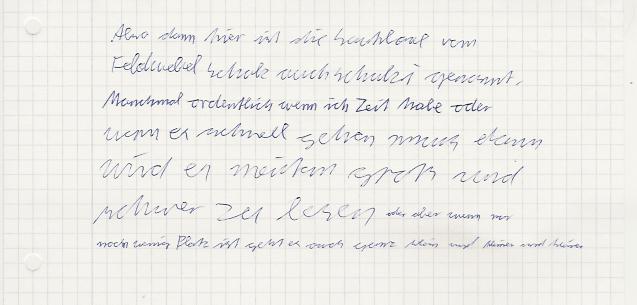 Also dann hier ist die Sauklaue vom
Feldwebel Schulz auch Schulzi genannt.
Manchmal ordentlich wenn ich Zeit habe oder
wenn es schnell gehen muss dann
wird es meistens groß und
schwer zu lesen oder aber wenn nur
noch wenig Platz ist geht es auch ganz klein und kleiner und kleiner